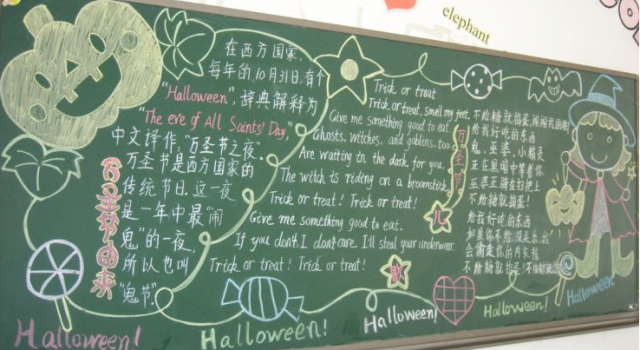 elephant
在西方国家,
每年的10月31日,有个
"Halloween",辞典解释为
"The eve of All Saints' Day",
中文译作:"万圣节之夜".
万圣节是西方国家的
传统节日.这一夜
是一年中最"闹
鬼"的一夜,
所以也叫
"鬼节".
万圣节由来
Trick or treat
Trick or treat, smell my feet,
Give me something good to eat
Ghosts, witches, and goblins, too.
Are waiting in the dark for you.
The witch is riding on a broomstick,
Trick or treat! Trick or treat!
Give me something good to eat.
If you don't, I don't care. I'll steal your underwear.
Trick or treat! Trick or treat!
万圣节
儿
歌
不给糖就捣蛋,闻闻我的脚
给我好吃的东西
鬼、巫婆、小精灵
正在黑暗中等着你
巫婆正骑在扫把上
不给糖就捣蛋!
给我好吃的东西
Halloween!
Halloween!
Halloween!
Halloween!
Halloween